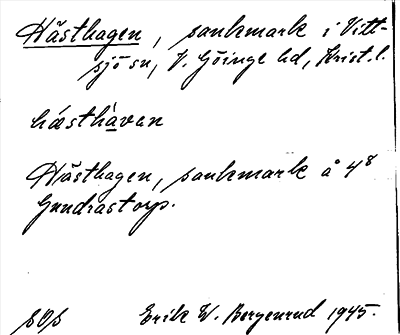 Hästhagen, sankmark i Vitt-
sjö sn, V. Göinge hd, Krist. l.
hästhàvan
Hästhagen, sankmark å 4⁸
Gundrastorp.
Erik W. Bergenrud 1945.